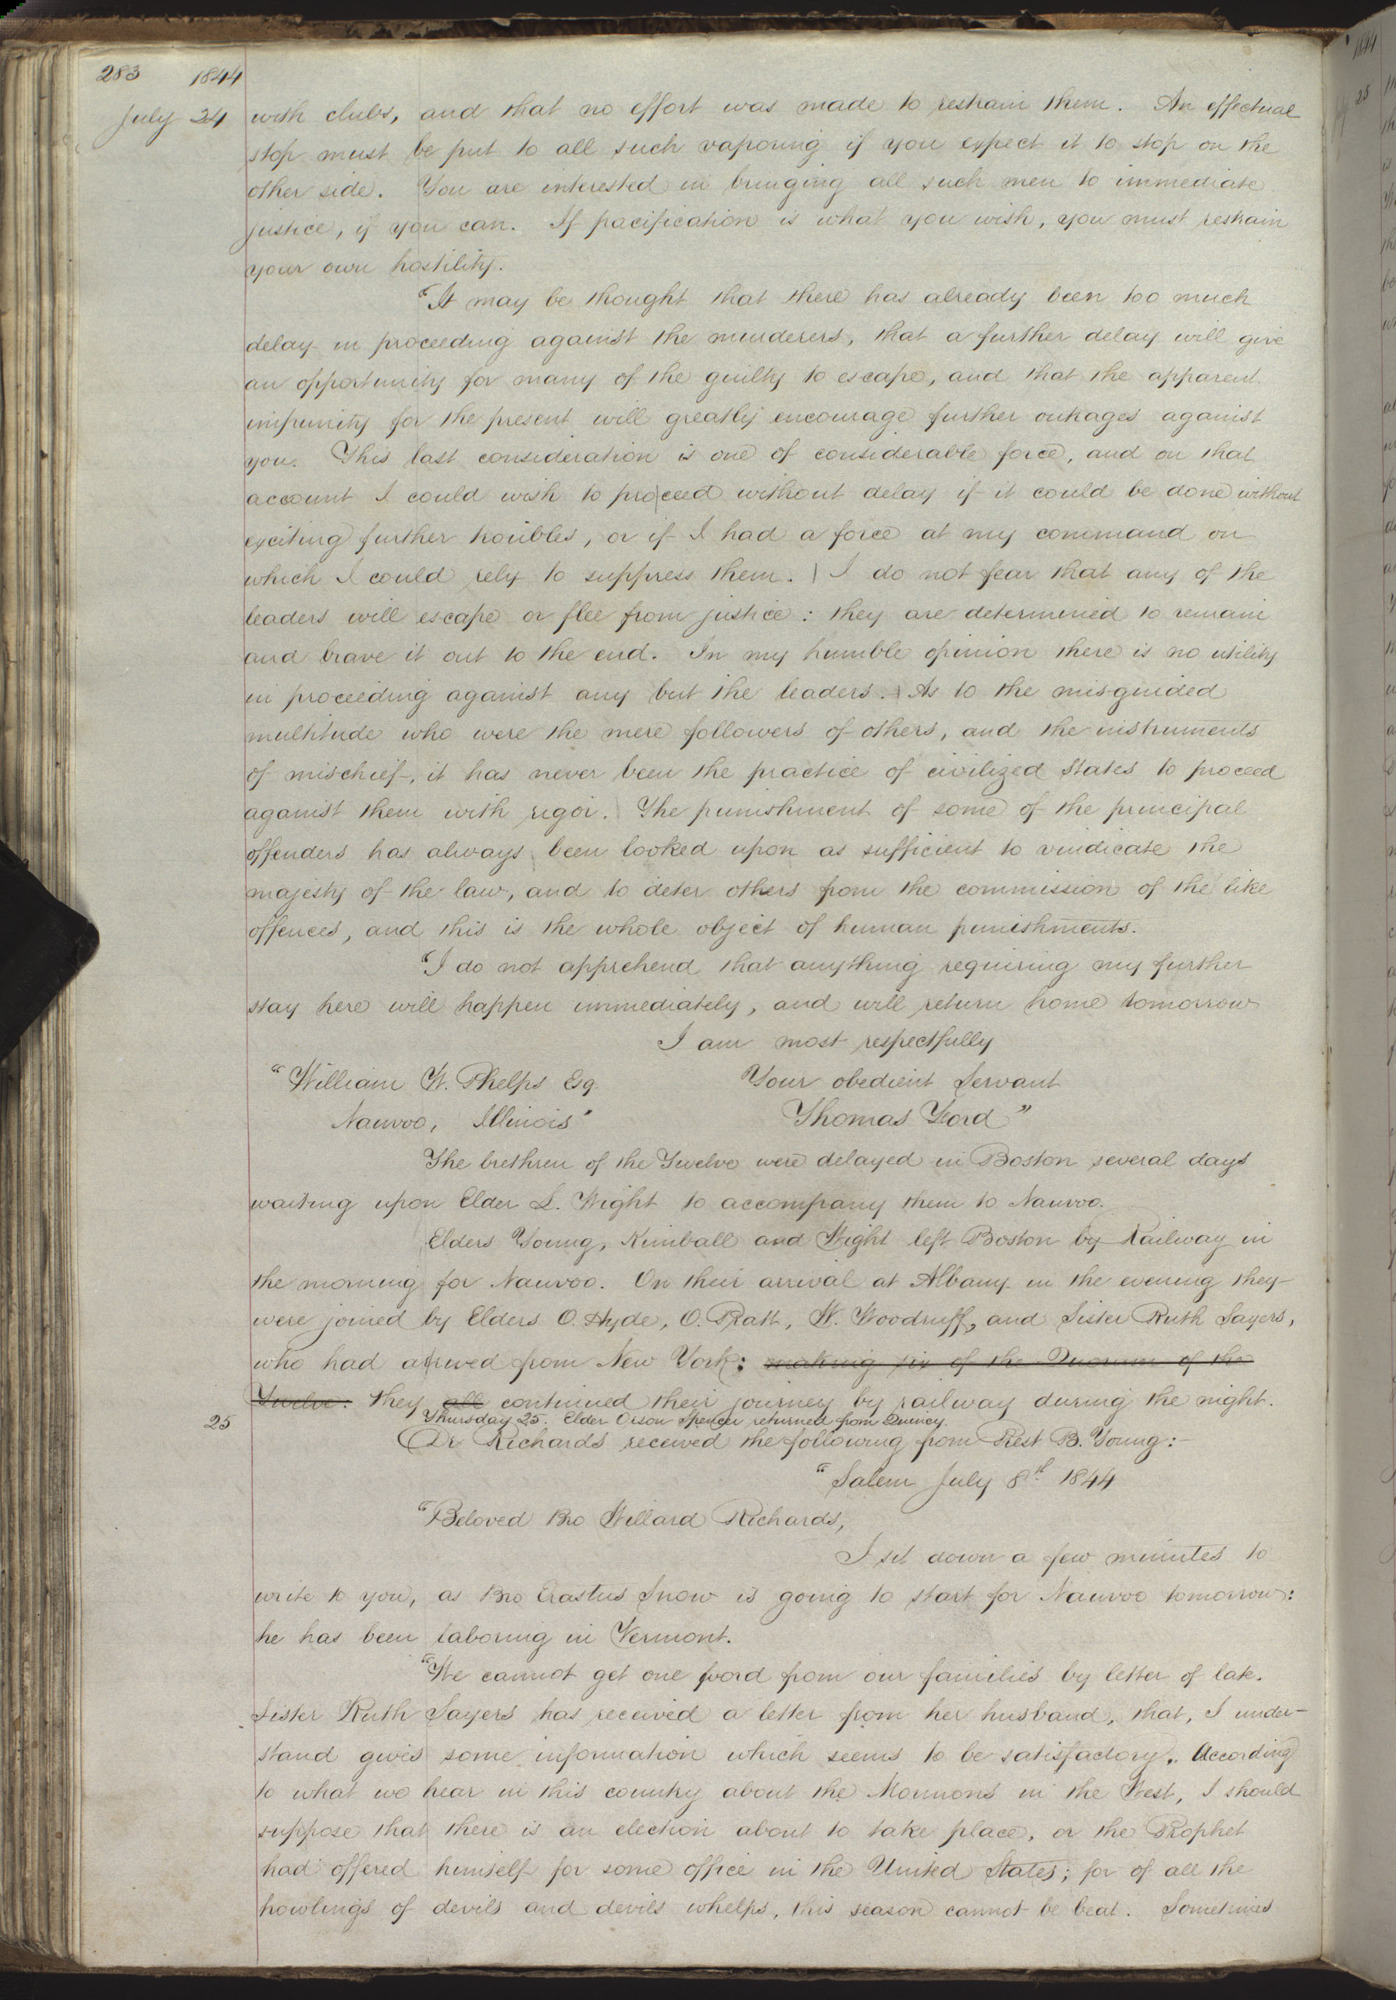 283 1844
July 24 with clubs, and that no effort was made to restrain them. An effectual
stop must be put to all such vaporing if you expect it to stop on the
other side. You are interested in bringing all such men to immediate
justice, if you can. If pacification is what you wish, you must restrain
your own hostility.
"It may be thought that there has already been too much
delay in proceeding against the murderers, that a further delay will give
an opportunity for many of the guilty to escape, and that the apparent
impunity for the present will greatly encourage further outrages against
you. This last consideration is one of considerable force, and on that
account I could wish to proceed without delay if it could be done without
exciting further troubles, or if I had a force at my command on
which I could rely to suppress them. I do not fear that any of the
leaders will escape or flee from justice: they are determined to remain
and brave it out to the end. In my humble opinion there is no utility
in proceeding against any but the leaders. As to the misguided
multitude who were the mere followers of others, and the instruments
of mischief, it has never been the practice of civilized states to proceed
against them with rigor. The punishment of some of the principal
offenders has always been looked upon as sufficient to vindicate the
majesty of the law, and to deter others from the commission of the like
offences, and this is the whole object of human punishments.
"I do not apprehend that anything requiring my further
stay here will happen immediately, and will return home tomorrow
I am most respectfully
"William W. Phelps Esq. Your obedient Servant
Nauvoo, Illinois" Thomas Ford"
The brethren of the Twelve were delayed in Boston several days
waiting upon Elder L. Wight to accompany them to Nauvoo.
Elders Young, Kimball and Wight left Boston by Railway in
the morning for Nauvoo. On their arrival at Albany in the evening they
were joined by Elders O. Hyde, O. Pratt, W. Woodruff, and Sister Ruth Sayers,
who had arrived from New York: making six of the Quorum of the
Twelve: they all continued their journey by railway during the night.
25 Thursday 25. Elder Orson Spencer returned from Quincy.
Dr Richards received the following from Prest B. Young:-
"Salem July 8th 1844
"Beloved Bro Willard Richards,
I sit down a few minutes to
write to you, as Bro Erastus Snow is going to start for Nauvoo tomorrow:
he has been laboring in Vermont.
"We cannot get one word from our families by letter of late.
Sister Ruth Sayers has received a letter from her husband, that, I under-
stand gives some information which seems to be satisfactory. According
to what we hear in this country about the Mormons in the West, I should
suppose that there is an election about to take place, or the Prophet
had offered himself for some office in the United States; for of all the
howlings of devils and devils whelps, this season cannot be beat. Sometimes